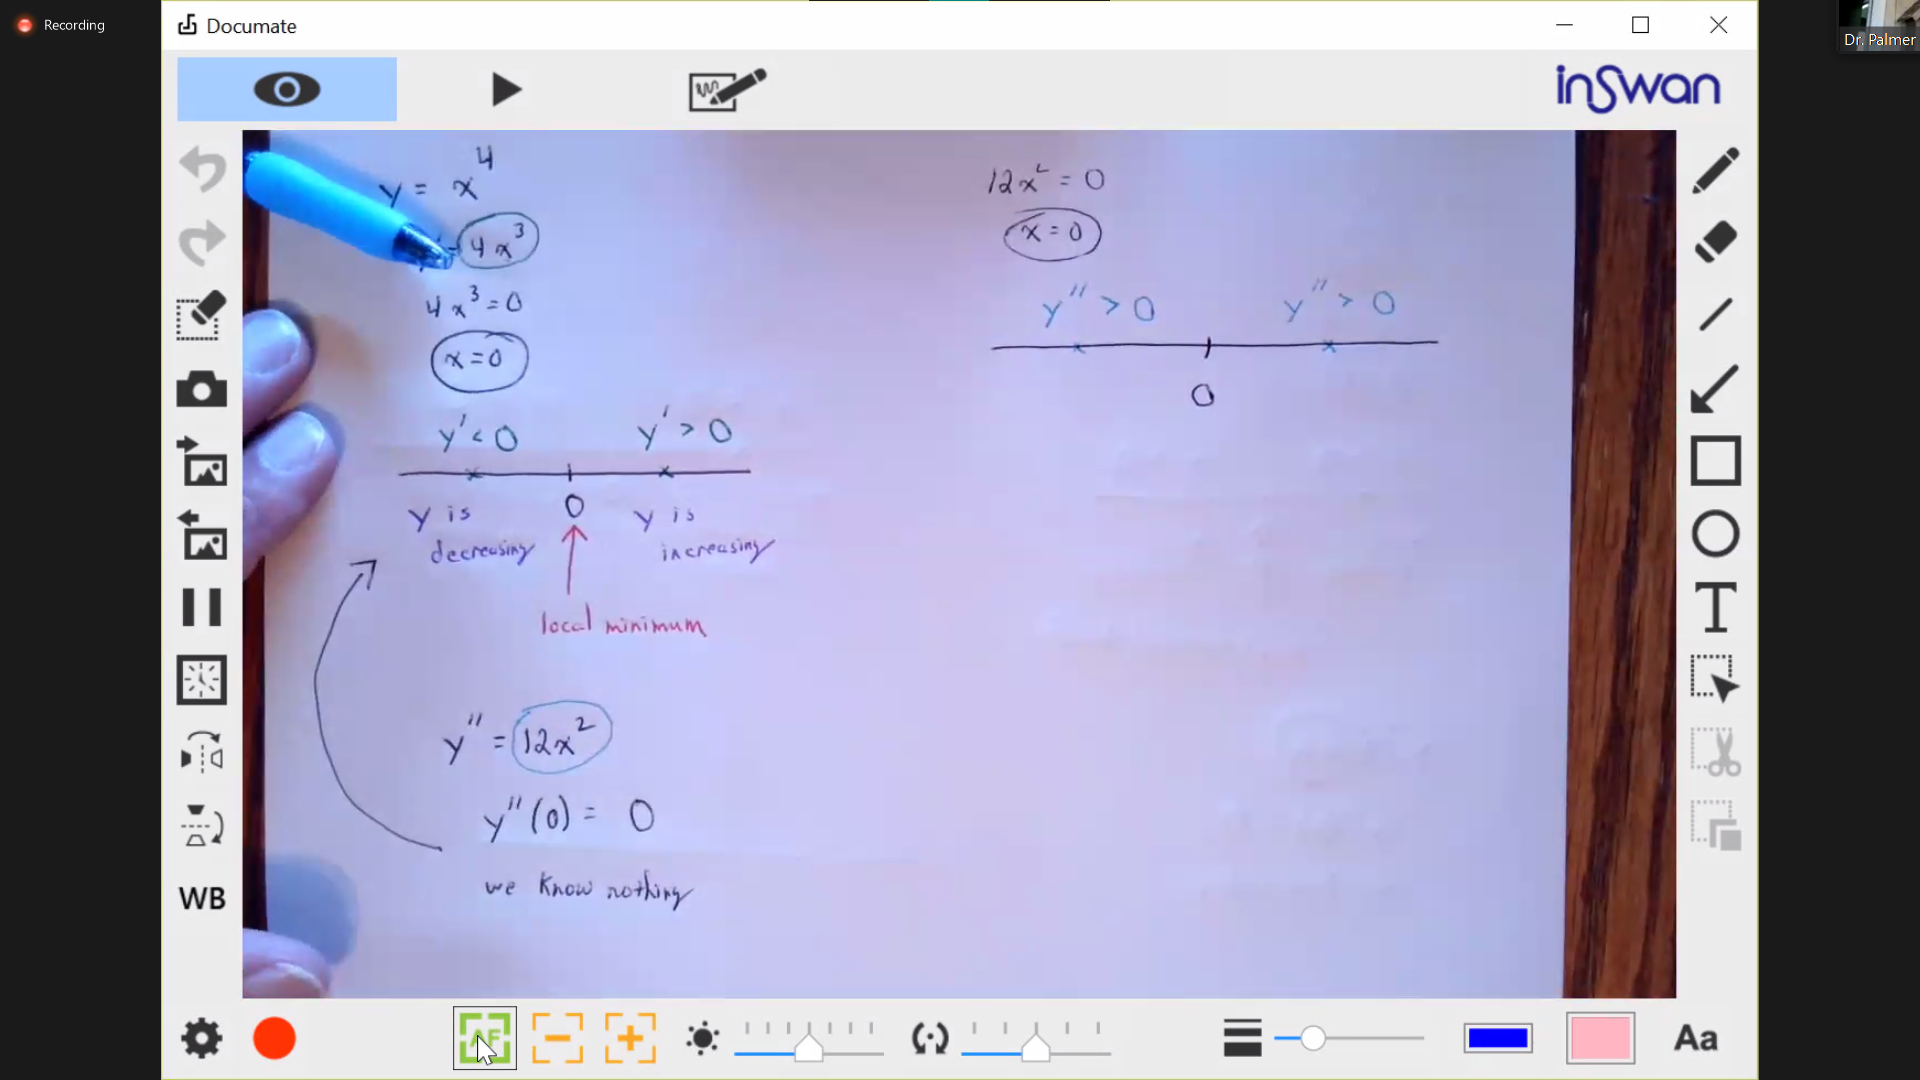 Recording
Documate
Dr. Palmer
inSwan
y = x^4
= 4x^3
4x^3 = 0
x = 0
y' < 0 y' > 0
0
y is decreasing
y is increasing
local minimum
y'' = 12x^2
y''(0) = 0
we know nothing
12x^2 = 0
x = 0
y'' > 0 y'' > 0
0
WB
T
AF
Aa